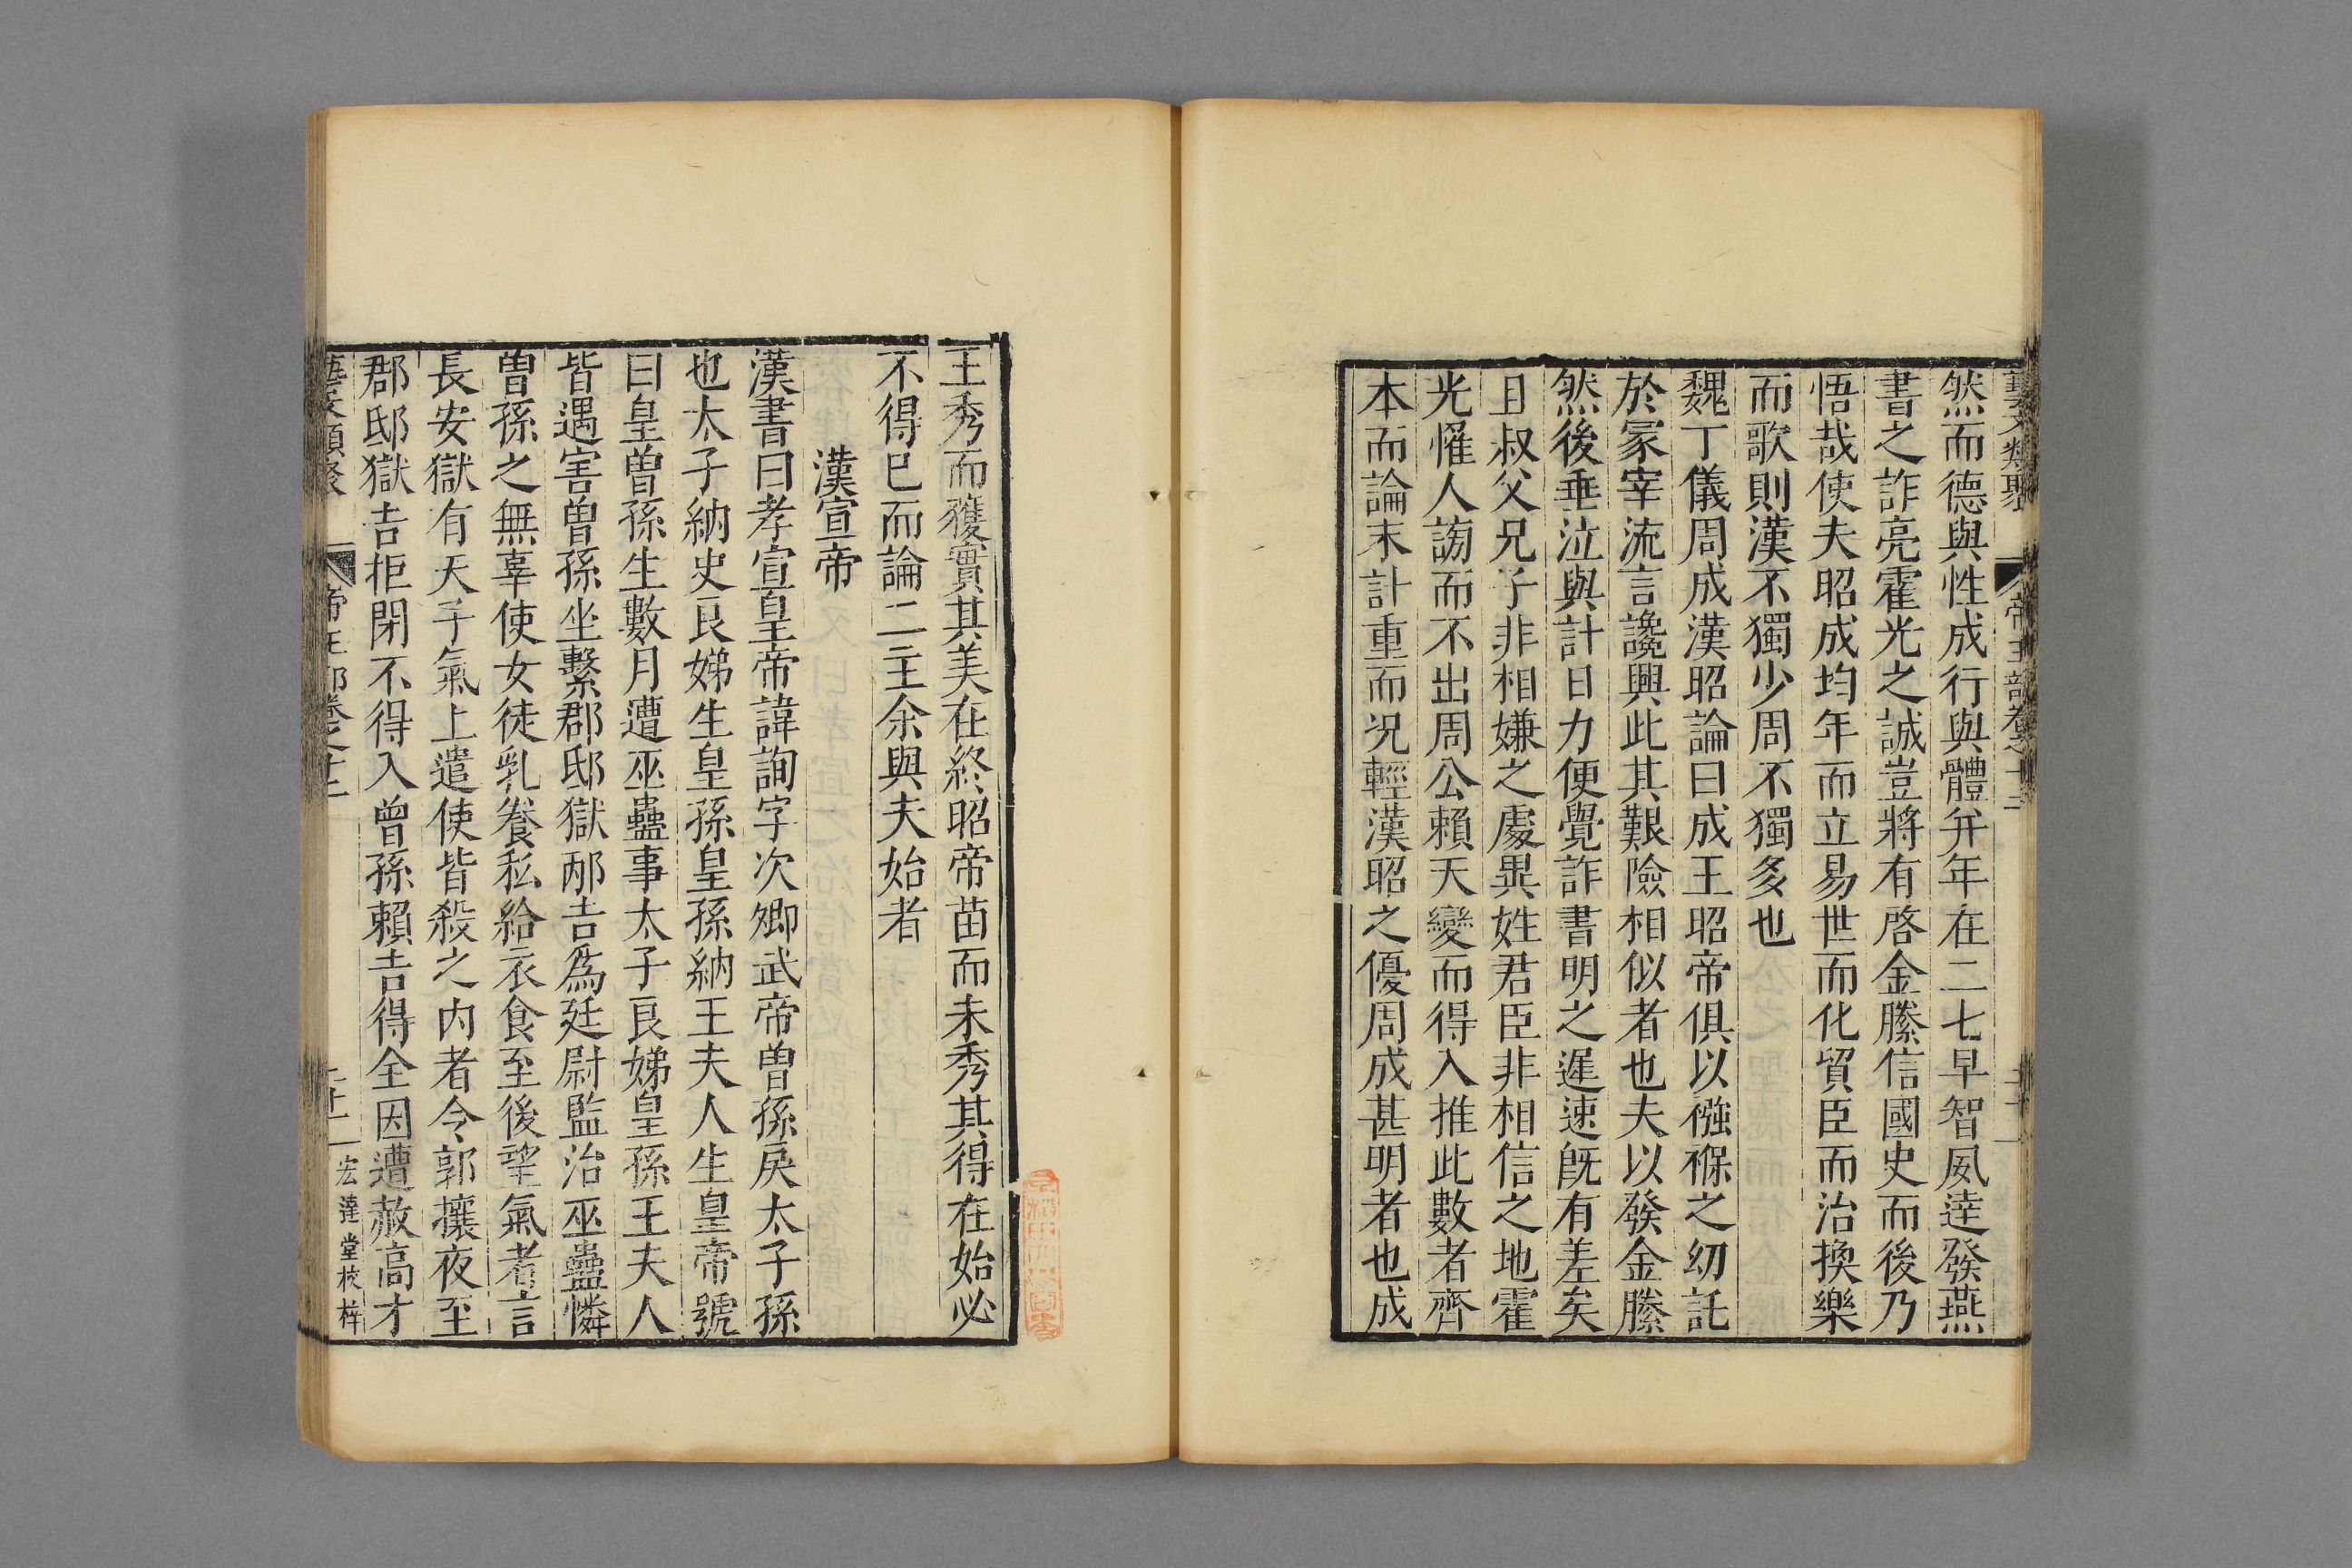 藝文類聚 帝王部卷之十二
然而德與性成行與體并年在二七早智夙達發燕
書之詐亮霍光之誠豈將有啓金縢信國史而後乃
悟哉使夫昭成均年而立易世而化貿臣而治換樂
而歌則漢不獨少周不獨多也
魏丁儀周成漢昭論曰成王昭帝俱以襁褓之幼託
於冢宰流言讒興此其艱險相似者也夫以發金縢
然後垂泣與計日力便覺詐書明之遲速旣有差矣
且叔父兄子非相嫌之處異姓君臣非相信之地霍
光懼人謗而不出周公賴天變而得入推此數者齊
本而論末計重而況輕漢昭之優周成甚明者也成
王秀而獲實其美在終昭帝苗而未秀其得在始必
不得已而論二主余與夫始者
漢宣帝
漢書曰孝宣皇帝諱詢字次卿武帝曾孫戾太子孫
也太子納史良娣生皇孫皇孫納王夫人生皇帝號
曰皇曾孫生數月遭巫蠱事太子良娣皇孫王夫人
皆遇害曾孫坐繫郡邸獄邴吉爲廷尉監治巫蠱憐
曾孫之無辜使女徒乳養私給衣食至後望氣者言
長安獄有天子氣上遣使皆殺之內者令郭攘夜至
郡邸獄吉拒閉不得入曾孫賴吉得全因遭赦高才
宏達堂校梓